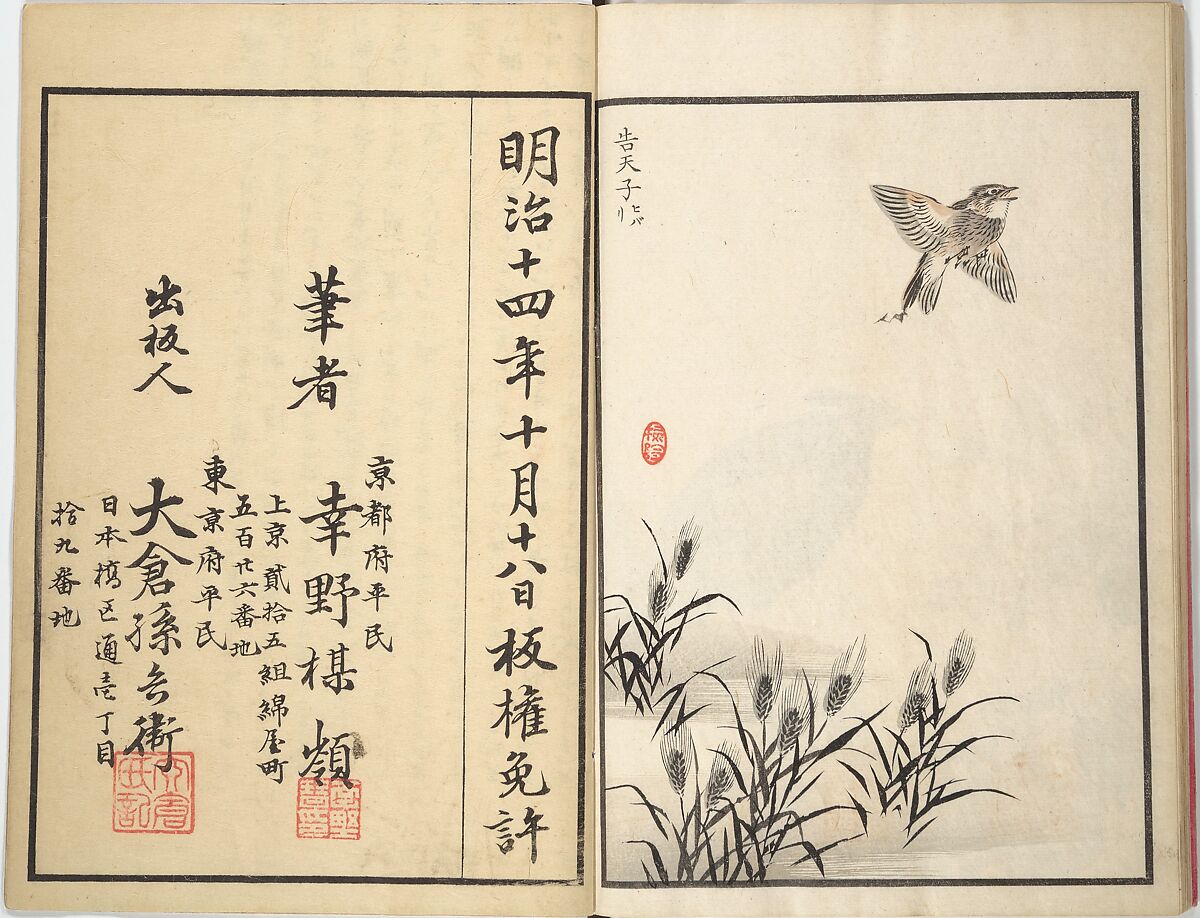 告天子
ヒバリ
明治十四年十月十八日板權免許
筆者
京都府平民
上京貳拾五組綿屋町
五百廿六番地
幸野楳嶺
出板人
東京府平民
日本橋区通壱丁目
拾九番地
大倉孫兵衛